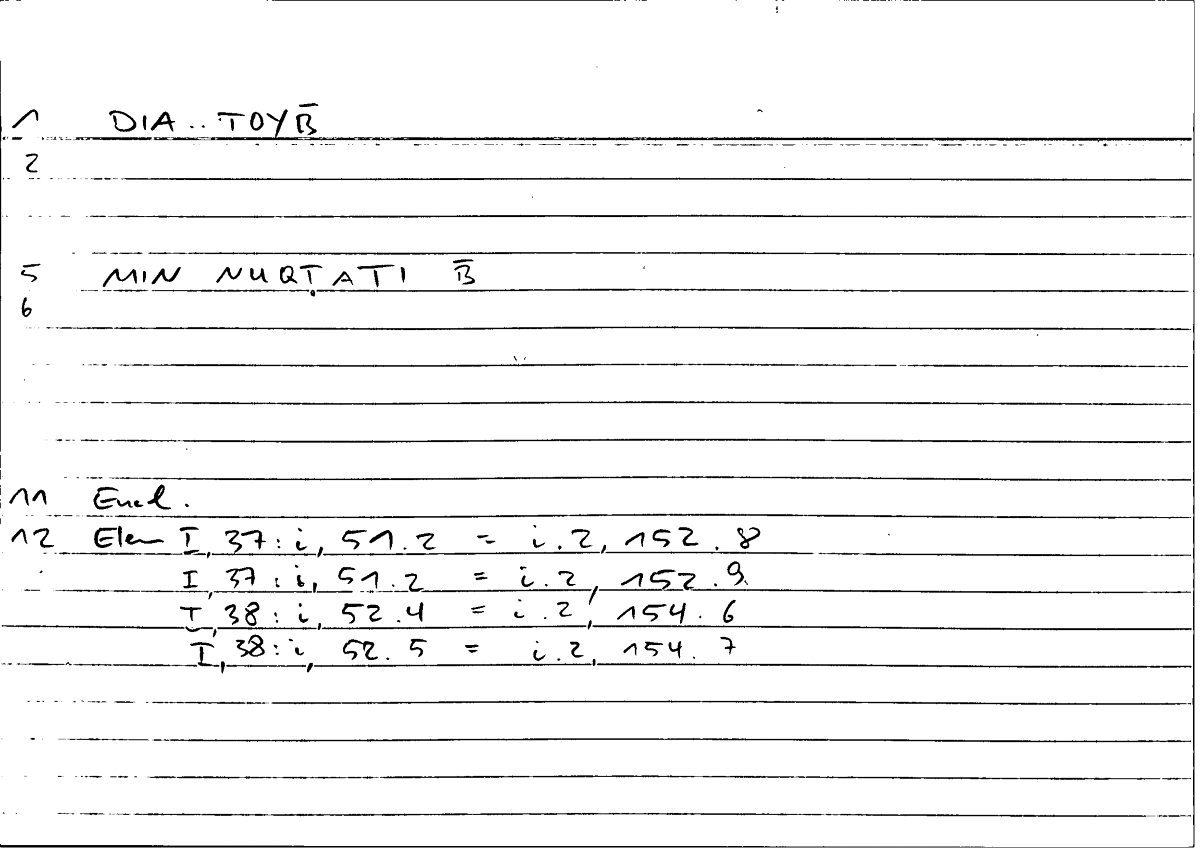 1 DIA .. TOY B̅
2
5 MIN NUQṬATI B̅
6
11 Eucl.
12 Elem I, 37 : i, 51.2 = i.2, 152.8
I, 37 : i, 51.2 = i.2, 152.9
I, 38 : i, 52.4 = i.2, 154.6
I, 38 : i, 52.5 = i.2, 154.7